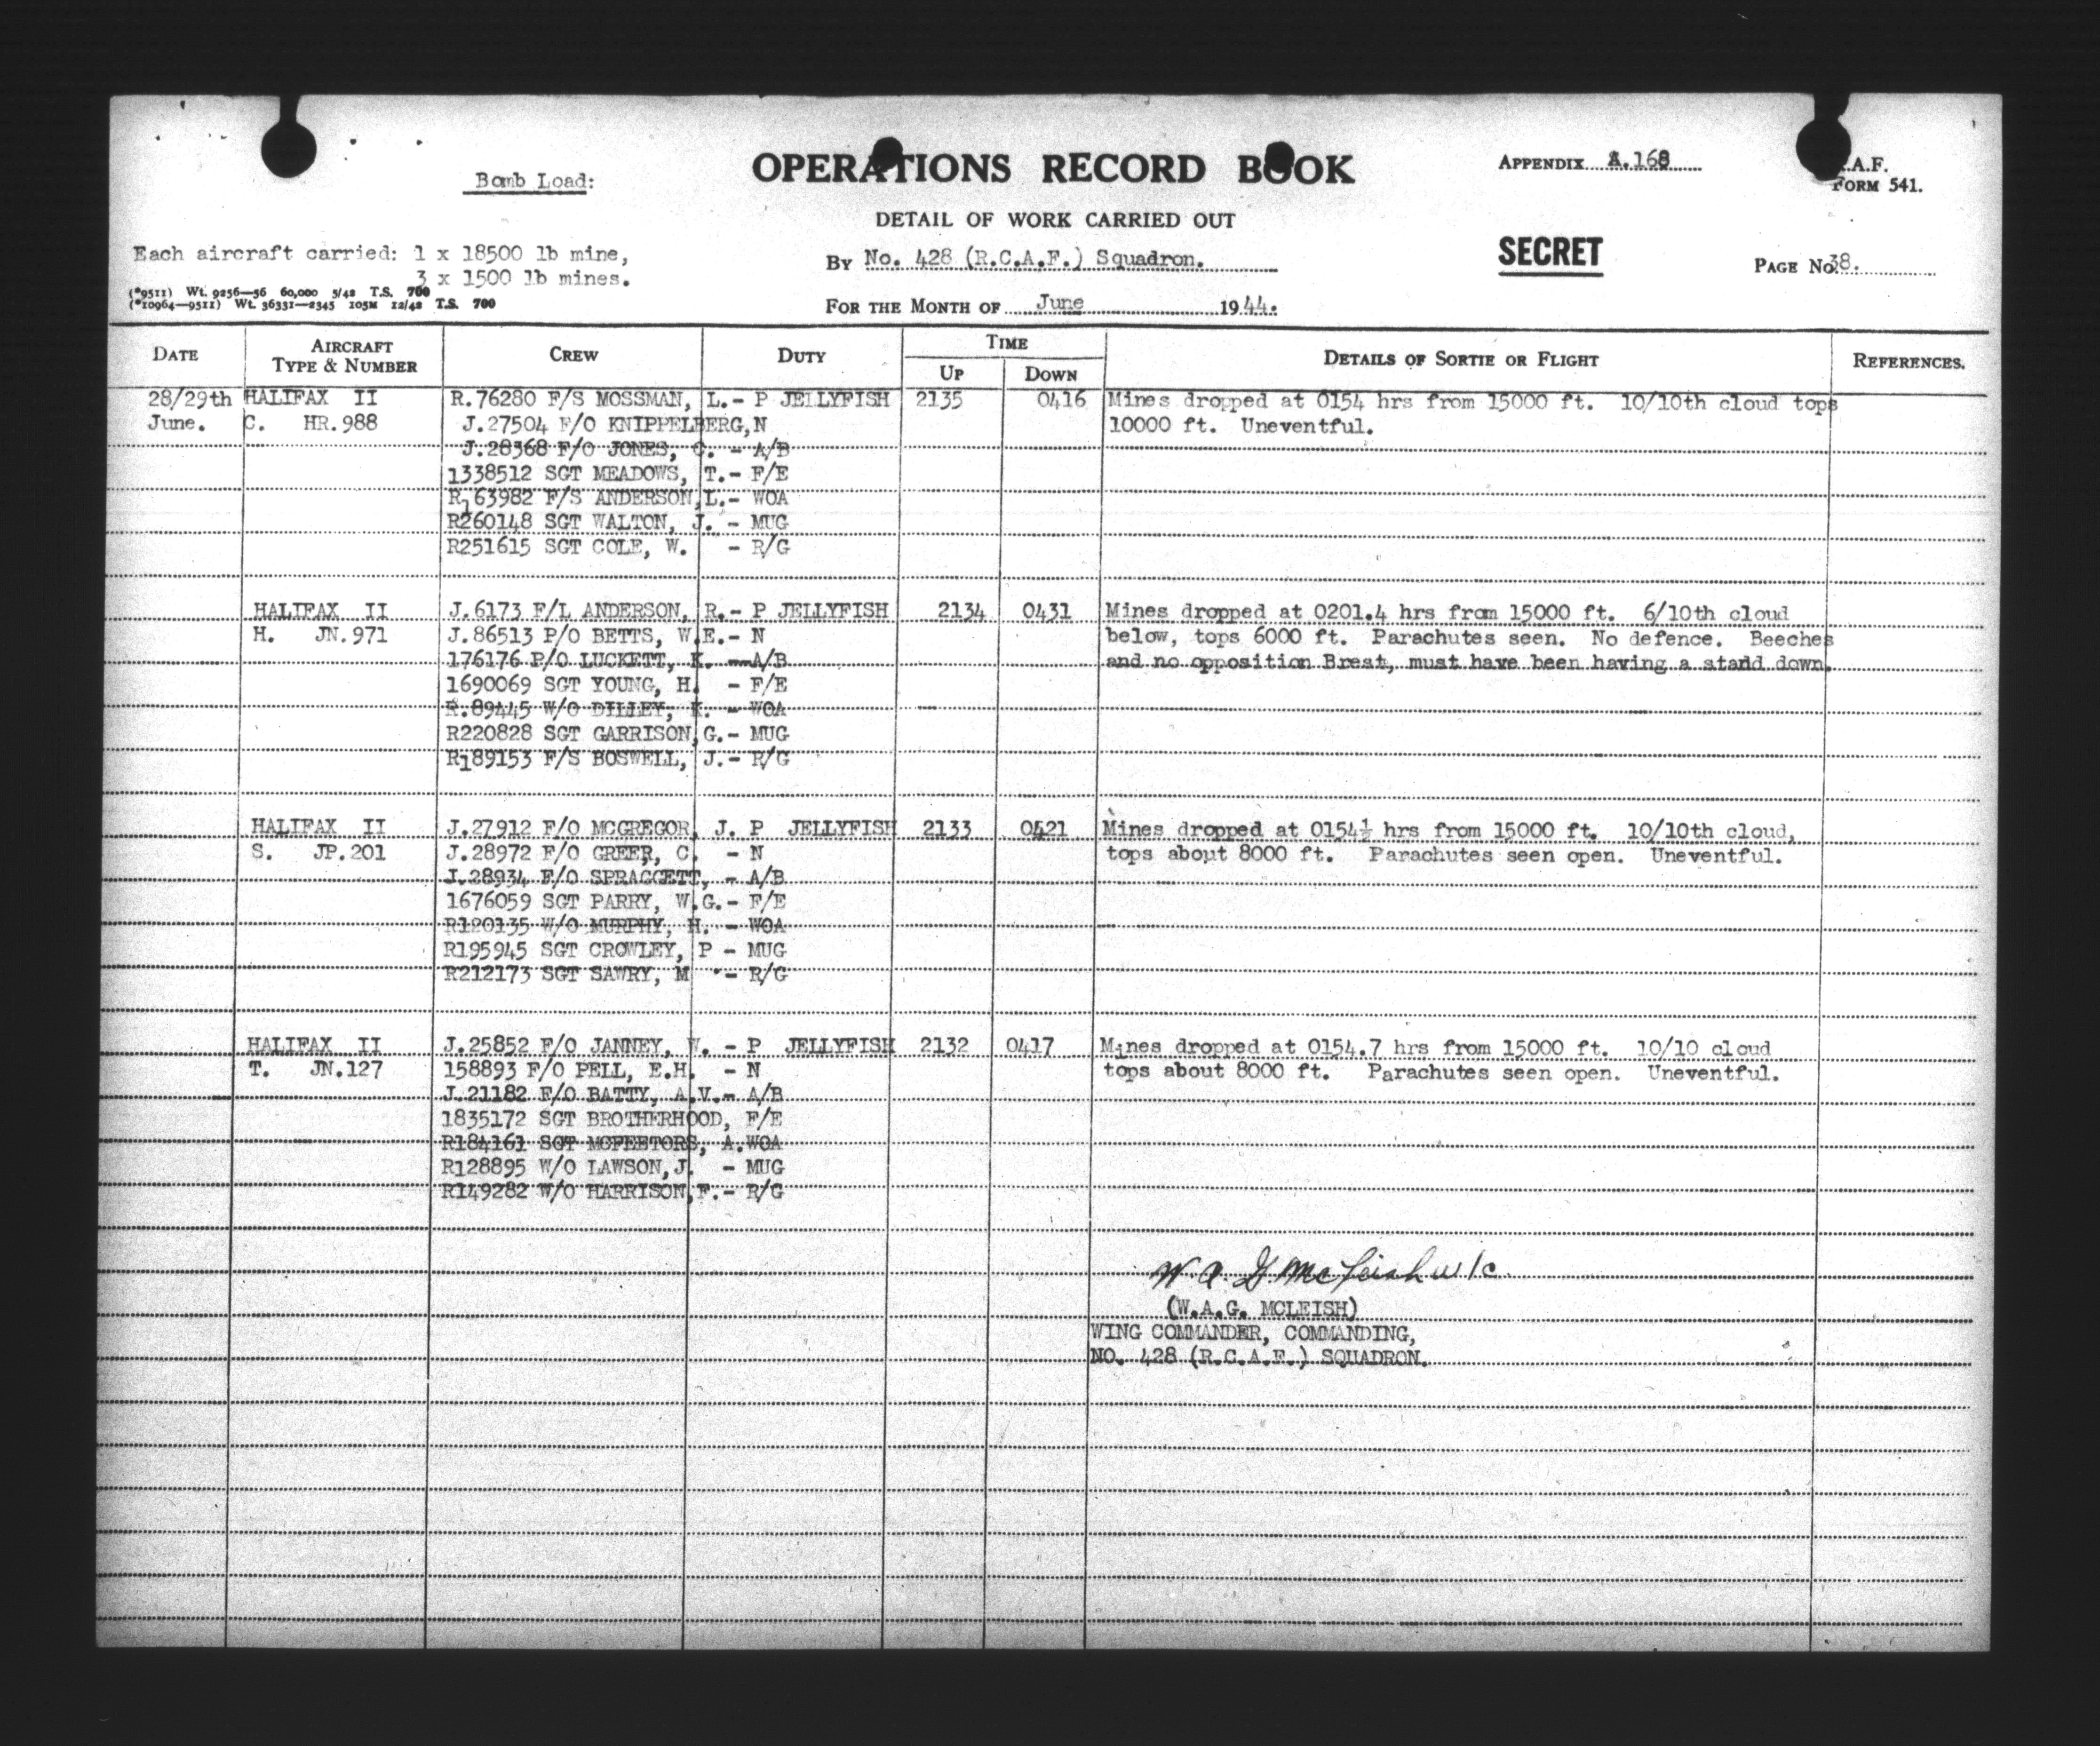 Bomb Load:
OPERATIONS RECORD BOOK
APPENDIX A.168
R.A.F. FORM 541.
DETAIL OF WORK CARRIED OUT
Each aircraft carried: 1 x 18500 lb mine,
3 x 1500 lb mines.
By No. 428 (R.C.A.F.) Squadron.
SECRET
PAGE No 38.
(*9511) Wt. 9256—56 60,000 5/42 T.S. 700
(*10964—9511) Wt. 36331—2345 105M 12/42 T.S. 700
FOR THE MONTH OF June 1944.
DATE AIRCRAFT TYPE & NUMBER CREW DUTY TIME UP DOWN DETAILS OF SORTIE OR FLIGHT REFERENCES.
28/29th HALIFAX II R.76280 F/S MOSSMAN, L.- P JELLYFISH 2135 0416 Mines dropped at 0154 hrs from 15000 ft. 10/10th cloud tops
June. C. HR.988 J.27504 F/O KNIPPELBERG,N 10000 ft. Uneventful.
J.28368 F/O JONES, C. - A/B
1338512 SGT MEADOWS, T.- F/E
R163982 F/S ANDERSON,L.- WOA
R260148 SGT WALTON, J. - MUG
R251615 SGT COLE, W. - R/G
HALIFAX II J.6173 F/L ANDERSON, R.- P JELLYFISH 2134 0431 Mines dropped at 0201.4 hrs from 15000 ft. 6/10th cloud
H. JN.971 J.86513 P/O BETTS, W.E.- N below, tops 6000 ft. Parachutes seen. No defence. Beeches
176176 P/O LUCKETT, K. - A/B and no opposition Brest, must have been having a stand down.
1690069 SGT YOUNG, H. - F/E
R.89445 W/O DILLEY, K. - WOA
R220828 SGT GARRISON,G.- MUG
R189153 F/S BOSWELL, J.- R/G
HALIFAX II J.27912 F/O MCGREGOR, J. P JELLYFISH 2133 0421 Mines dropped at 0154½ hrs from 15000 ft. 10/10th cloud,
S. JP.201 J.28972 F/O GREER, C. - N tops about 8000 ft. Parachutes seen open. Uneventful.
J.28934 F/O SPRAGGETT, - A/B
1676059 SGT PARRY, W.G.- F/E
R120135 W/O MURPHY, H. - WOA
R195945 SGT CROWLEY, P - MUG
R212173 SGT SAWRY, M - R/G
HALIFAX II J.25852 F/O JANNEY, W. - P JELLYFISH 2132 0417 Mines dropped at 0154.7 hrs from 15000 ft. 10/10 cloud
T. JN.127 158893 F/O PELL, E.H. - N tops about 8000 ft. Parachutes seen open. Uneventful.
J.21182 F/O BATTY, A.V.- A/B
1835172 SGT BROTHERHOOD, F/E
R184161 SGT MCFEETORS, A.WOA
R128895 W/O LAWSON,J. - MUG
R149282 W/O HARRISON,F.- R/G
W A G McLeish w/c
(W.A.G. MCLEISH)
WING COMMANDER, COMMANDING,
NO. 428 (R.C.A.F.) SQUADRON.